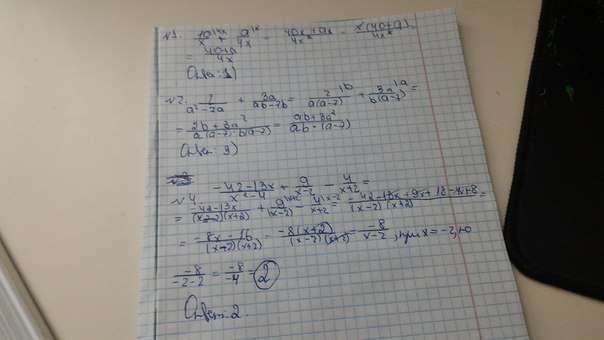 №1. 10/x + 9/4x = 40x+9x/4x² = x(40+9)/4x²
= 40+9/4x
Ответ: 1)
№2. 2/a²-2a + 3a/ab-2b = 2/a(a-2) + 3a/b(a-2) =
= 2b+3a²/a(a-2)·b(a-2) = 2b+3a²/ab·(a-2)
Ответ: 3)
№4. -42-13x/x²-4 + 9/x-2 - 4/x+2 =
= -42-13x/(x-2)(x+2) + 9/(x-2) - 4/x+2 = -42-13x+9x+18-4x+8/(x-2)(x+2) =
= -8x-16/(x-2)(x+2) = -8(x+2)/(x-2)(x+2) = -8/x-2, при x=-2, то
-8/-2-2 = -8/-4 = 2
Ответ: 2.